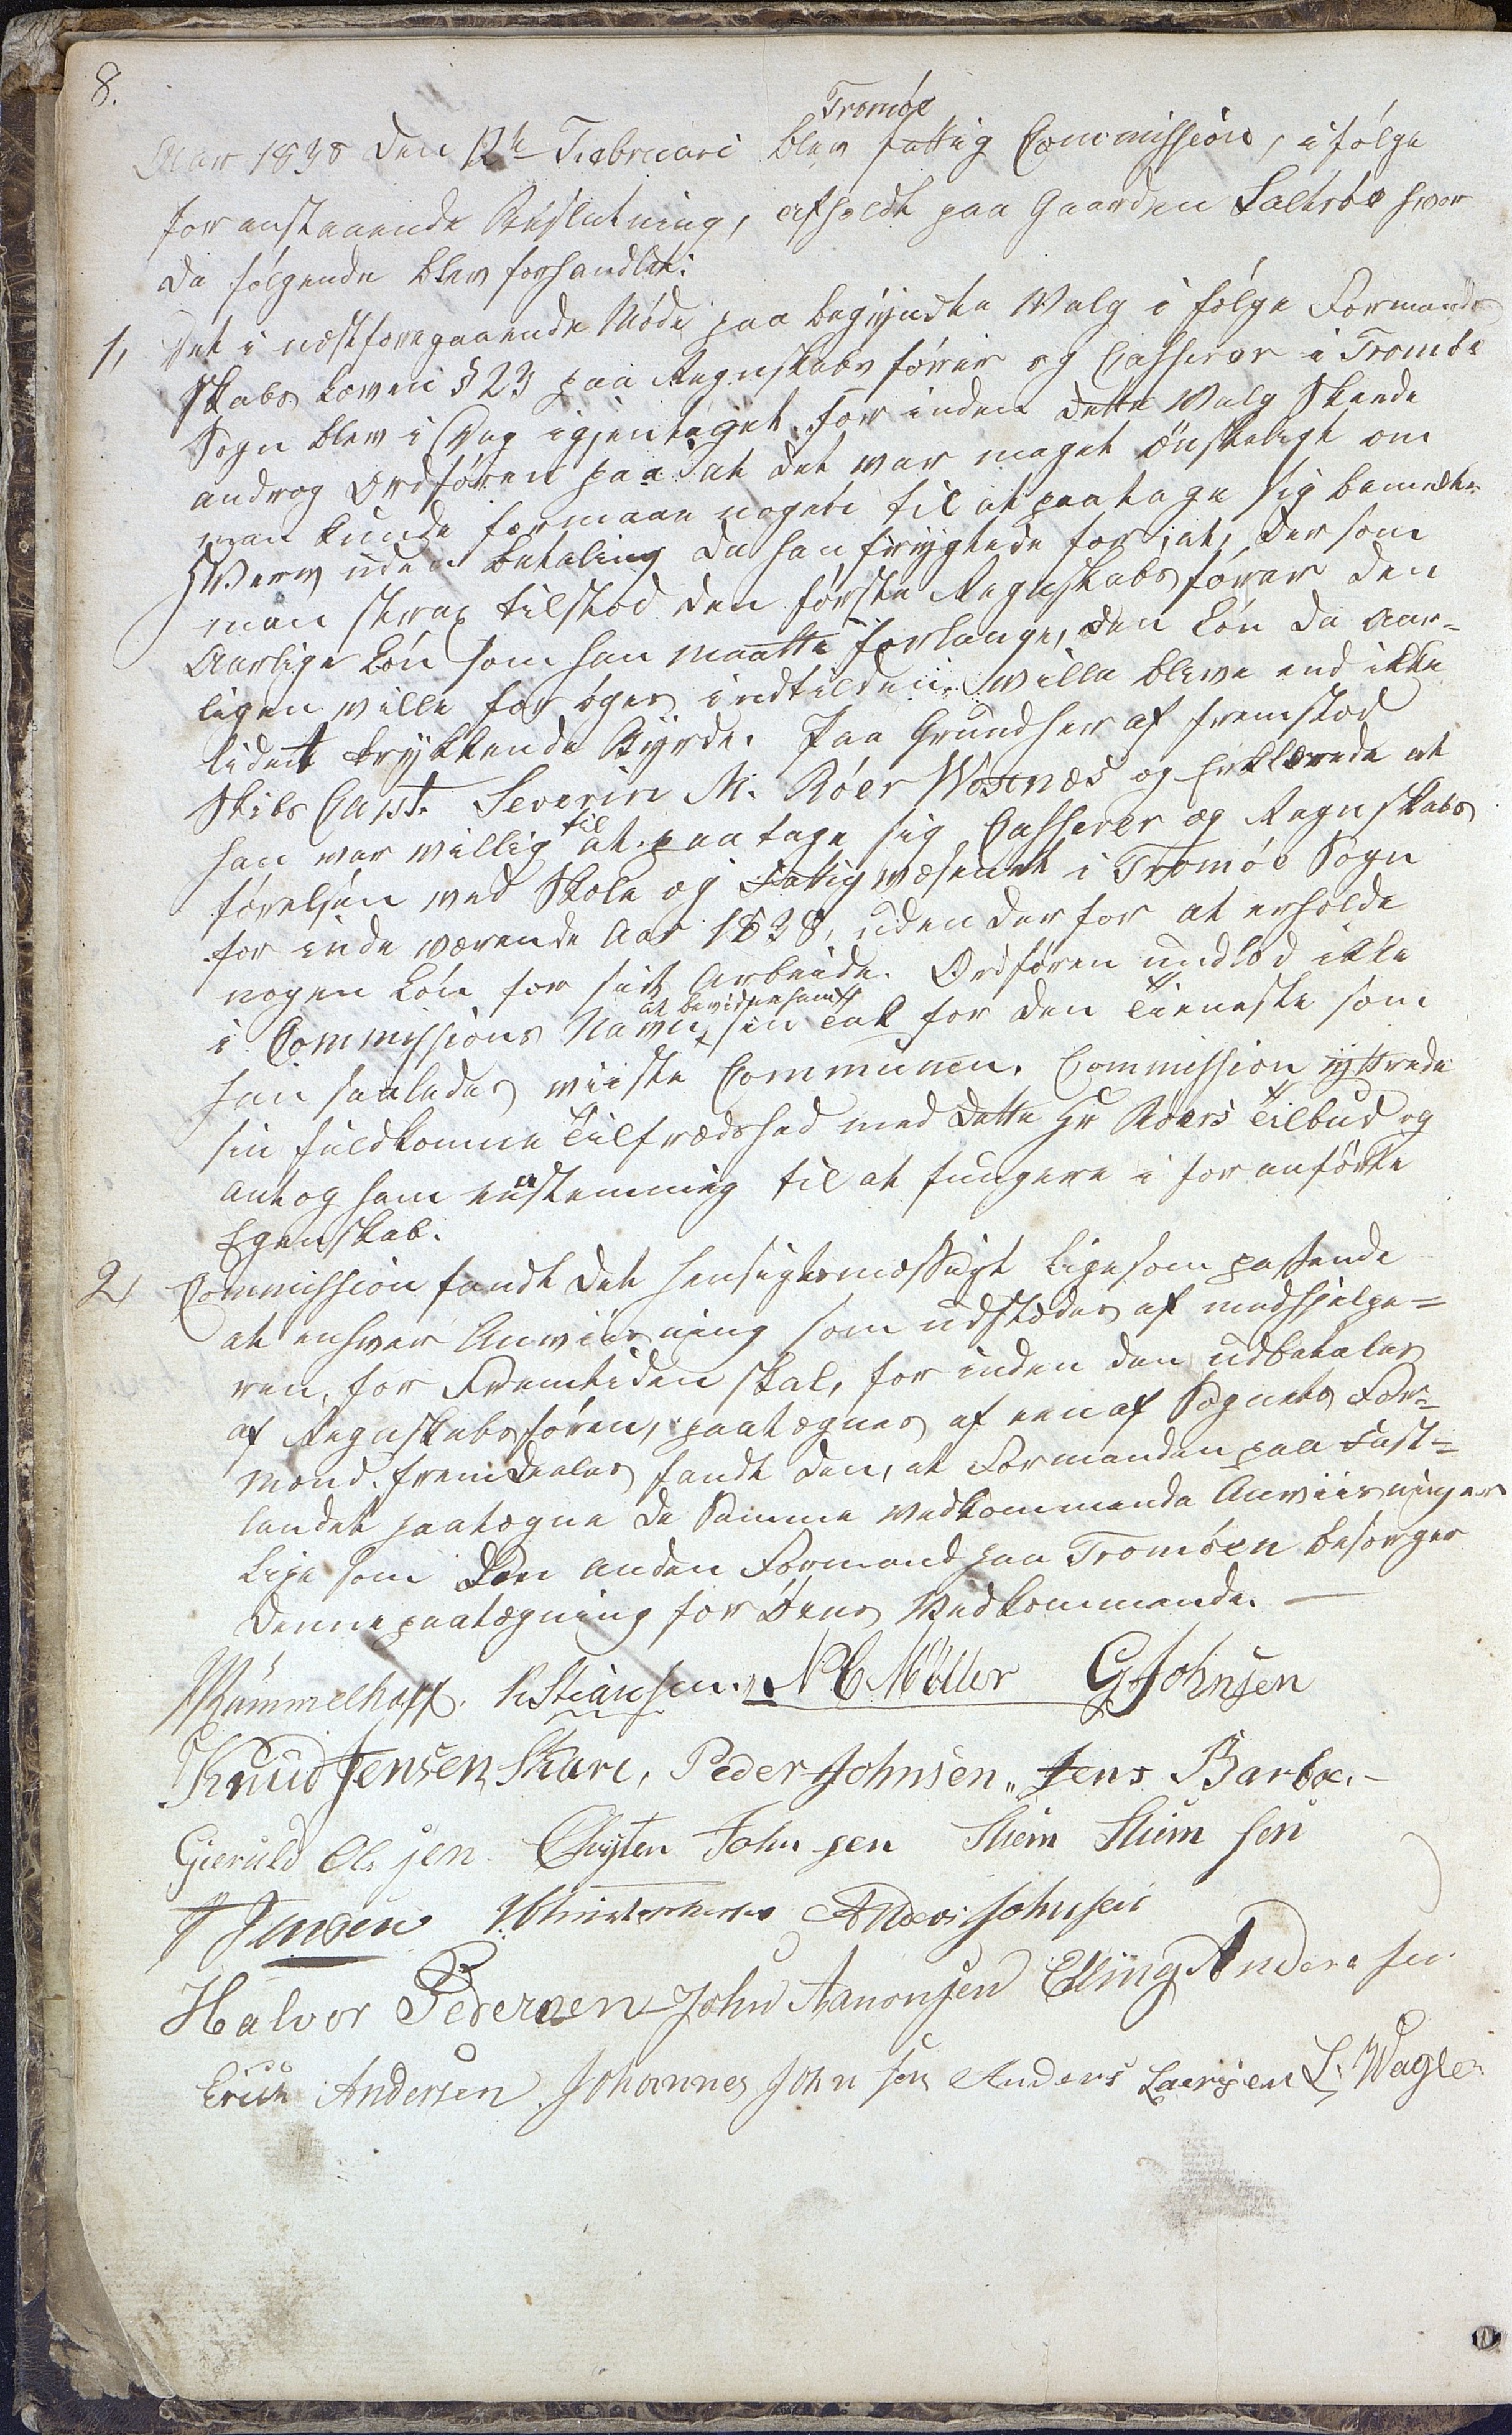 8.
Tromöe
Aar 1838 den 12te Februari blev Fattig Commission, ifölge
foranstaaende Beslutning, afholdt paa Gaarden Saltröe hvor
da fölgende blev forhandlet:
1, Det i næstforegaaende Möde paa begyndte Valg i fölge Formands
skabs Loven § 23 paa Regnskabs förer og Casserer i Tromöe
Sogn blev i Dag igjentaget. for inden dette Valg skeede
androg Ordfören paa at det var meget önskeligt om
man kunde formaae nogen til at paatage sig bemeldte
Hverv uden Betaling da han frygtede for, at, der som
man strax tilstod den förste Regnskabs förer den
Aarlige Lön som han maatte forlange, den Lön da Aar-
ligen ville for öges indtil den ville blive end ikke
lident trykkende Byrde. Paa Grund her af fremstod
Skibs Capt. Severin M. Röer Woxnæs og Erklærede at
til
han var villig at paatage sig Casserer og Regnskabs
förelsen ved Skole og Fattigvæsenet i Tromöe Sogn
for inde værende Aar 1838, uden der for at erholde
nogen Lön for sit Arbeide. Ordfören undlod ikke
at bevidne ham
i Commissions Navn sin Tak for den Tieneste som
han saaledes viiste Communen. Commission yttrede
sin fuldkomne Tilfredshed med dette Hr Röers Tilbud og
antog ham eenstemmig til at fungere i for anförte
Egenskab.
2, Commission fandt det hensigtsmæssigt ligesom passende
at enhver Anviisning som udstædes af medhjelpe-
ren, for Fremtiden skal, for inden den udbetales
af Regnskabsfören, paategnes af een af Sognets For-
mænd. fremdeeles fandt den, at Formanden paa Fast-
landet paategne de Samme vedkommende Anviisninger
lige som Den anden Formand paa Tromöen besørger
denne paategning for Öens Vedkommende. —
Rummelhoff. Kistiansen. N C Möller G Johnsen
Knud Jensen Skare, Peder Johnsen „ Jens Barboe. -
Gieruld Olsen Christen Johnsen Stien Stiensen
Jensen Anders Johnsen
Halvor Pedersen John Aanonsen Elling Andersen
Erich Andersen Johannes Johnsen Anders Laersen L. Wagle